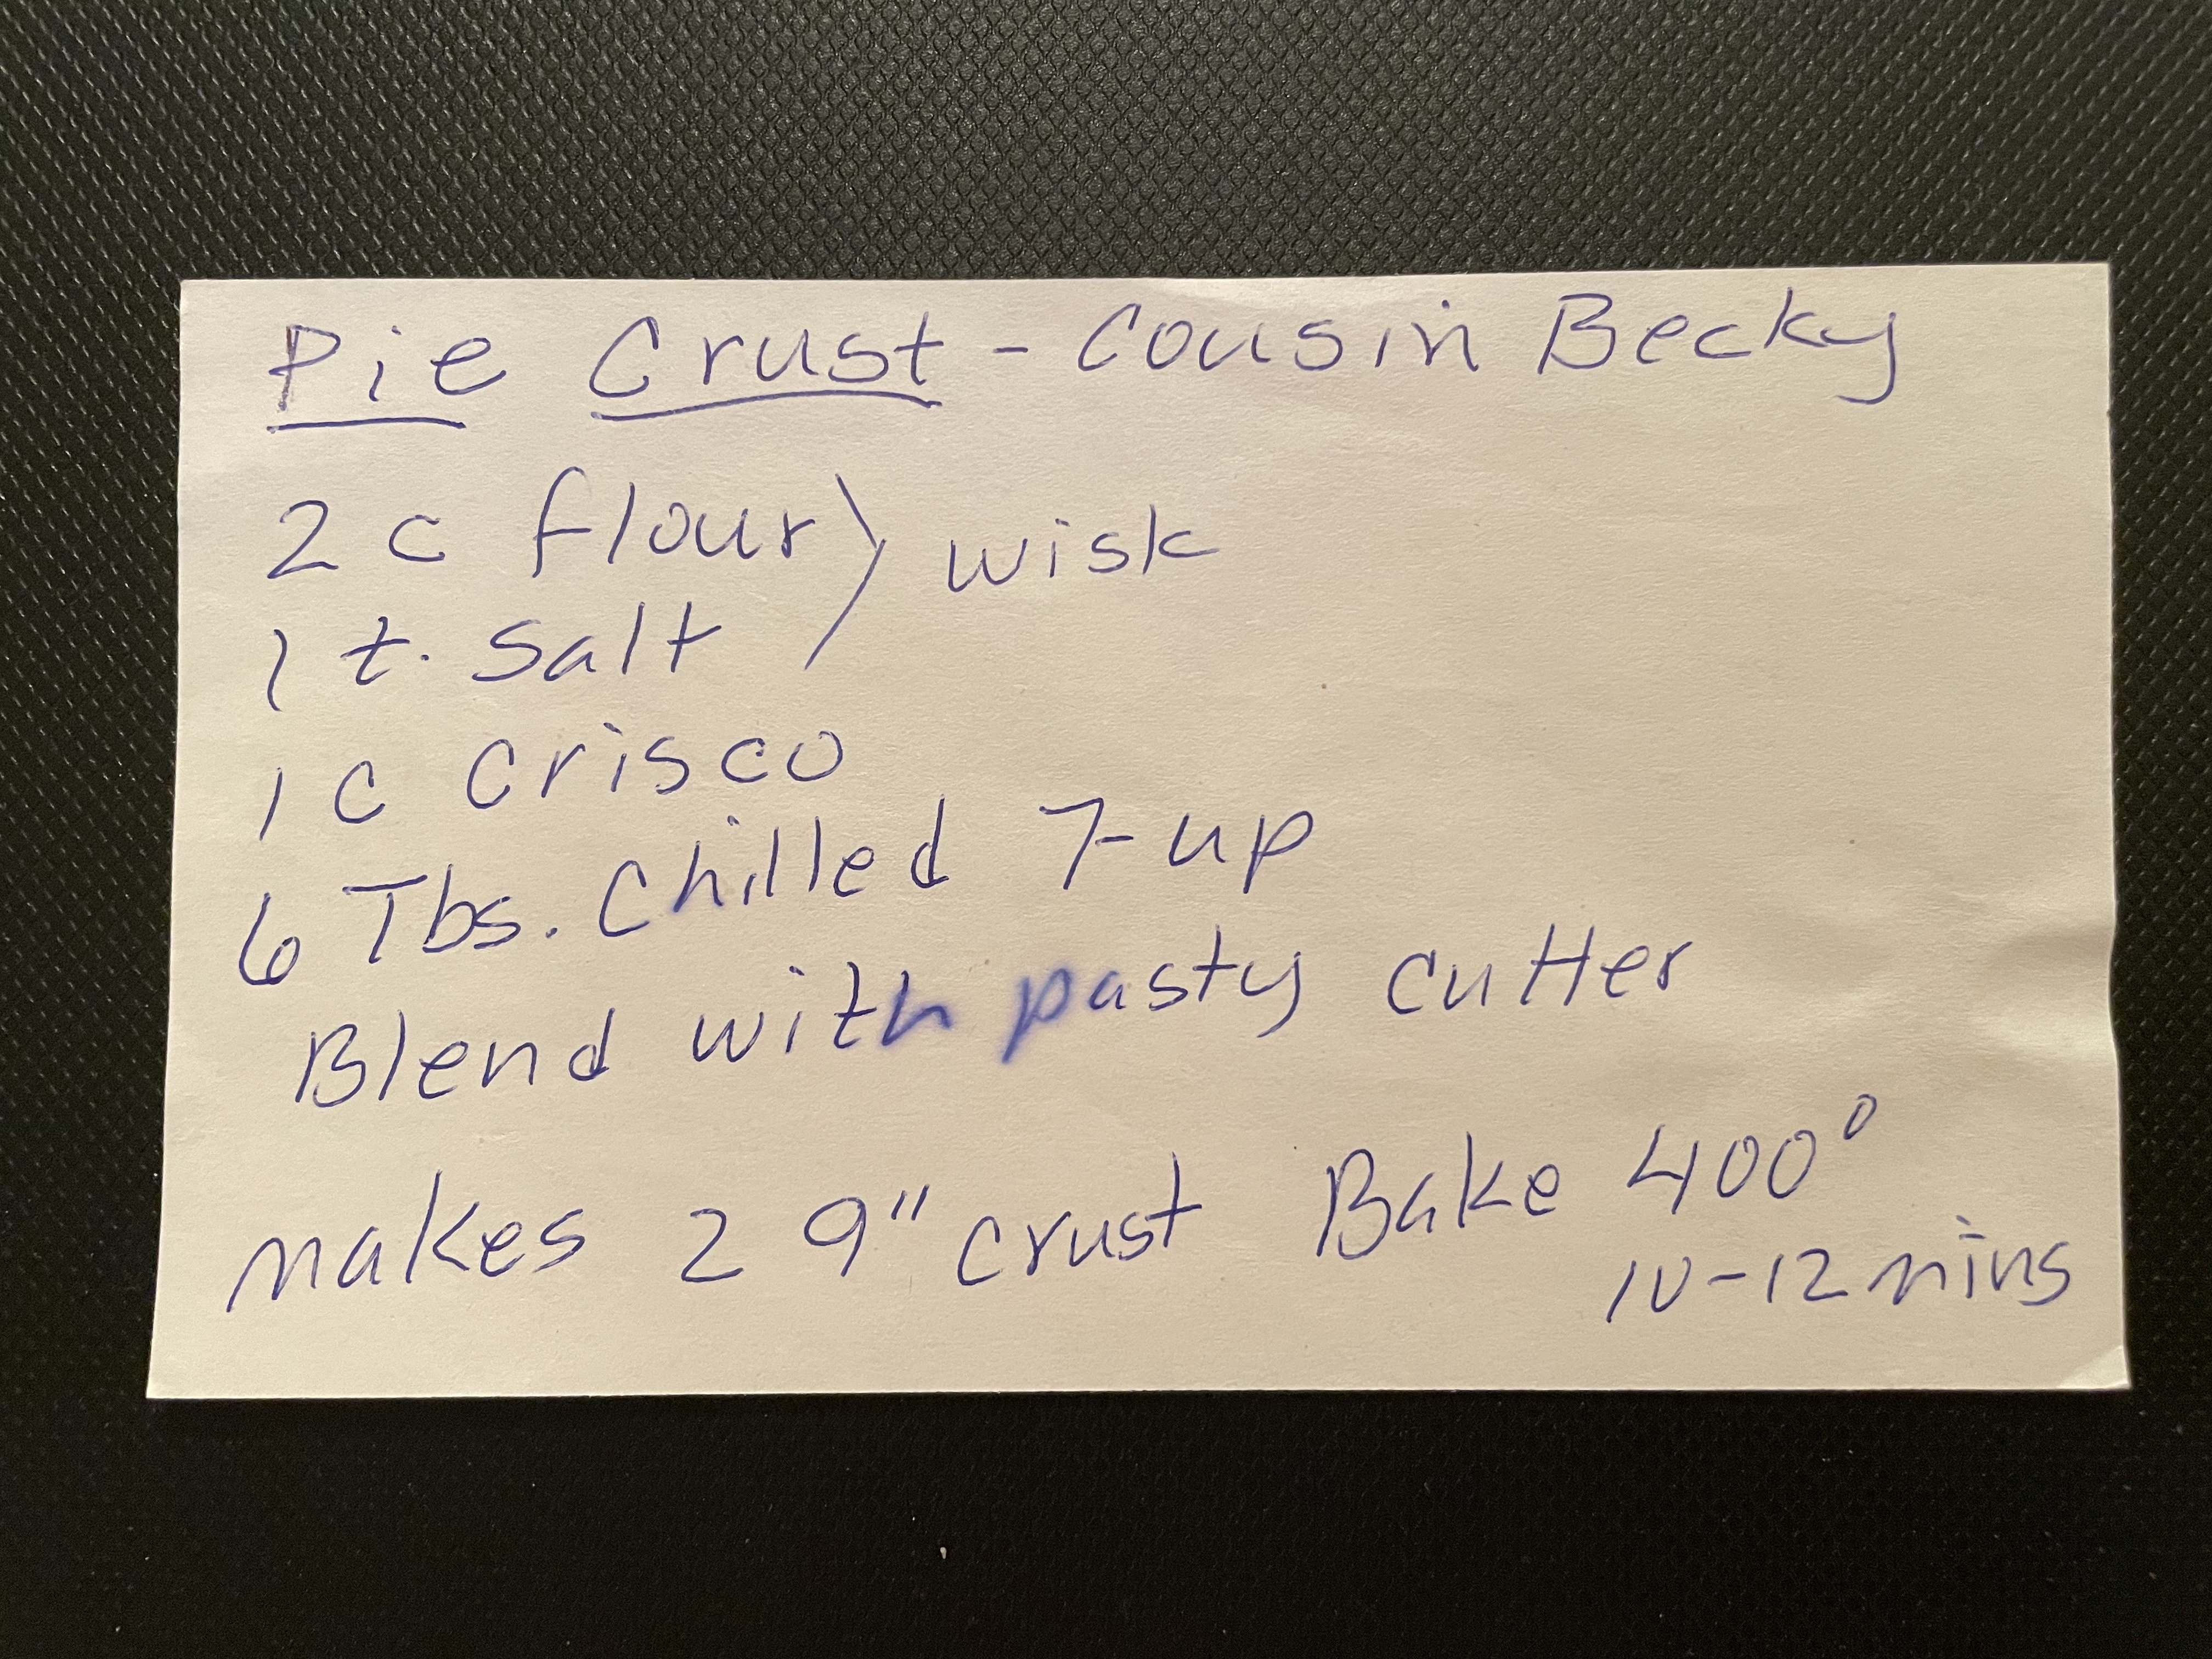 Pie Crust - Cousin Becky
2 c flour } wisk
1 t. salt
1 c crisco
6 Tbs. Chilled 7-up
Blend with pasty cutter
makes 2 9" crust Bake 400°
10-12 mins